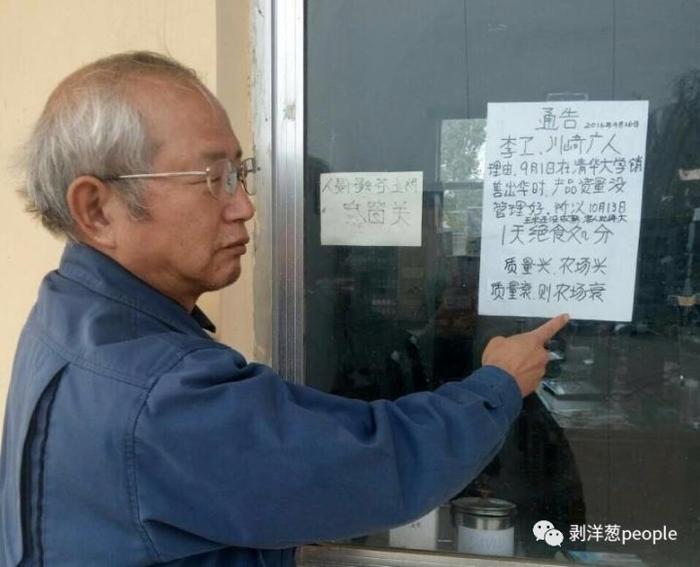 通告 2016年9月16日
李卫、川崎广人
理由,9月1日在清华大学销
售出华时,产品质量没
管理好,所以10月13日
1天绝食处分
质量兴,农场兴
质量衰,则农场衰
剥洋葱people